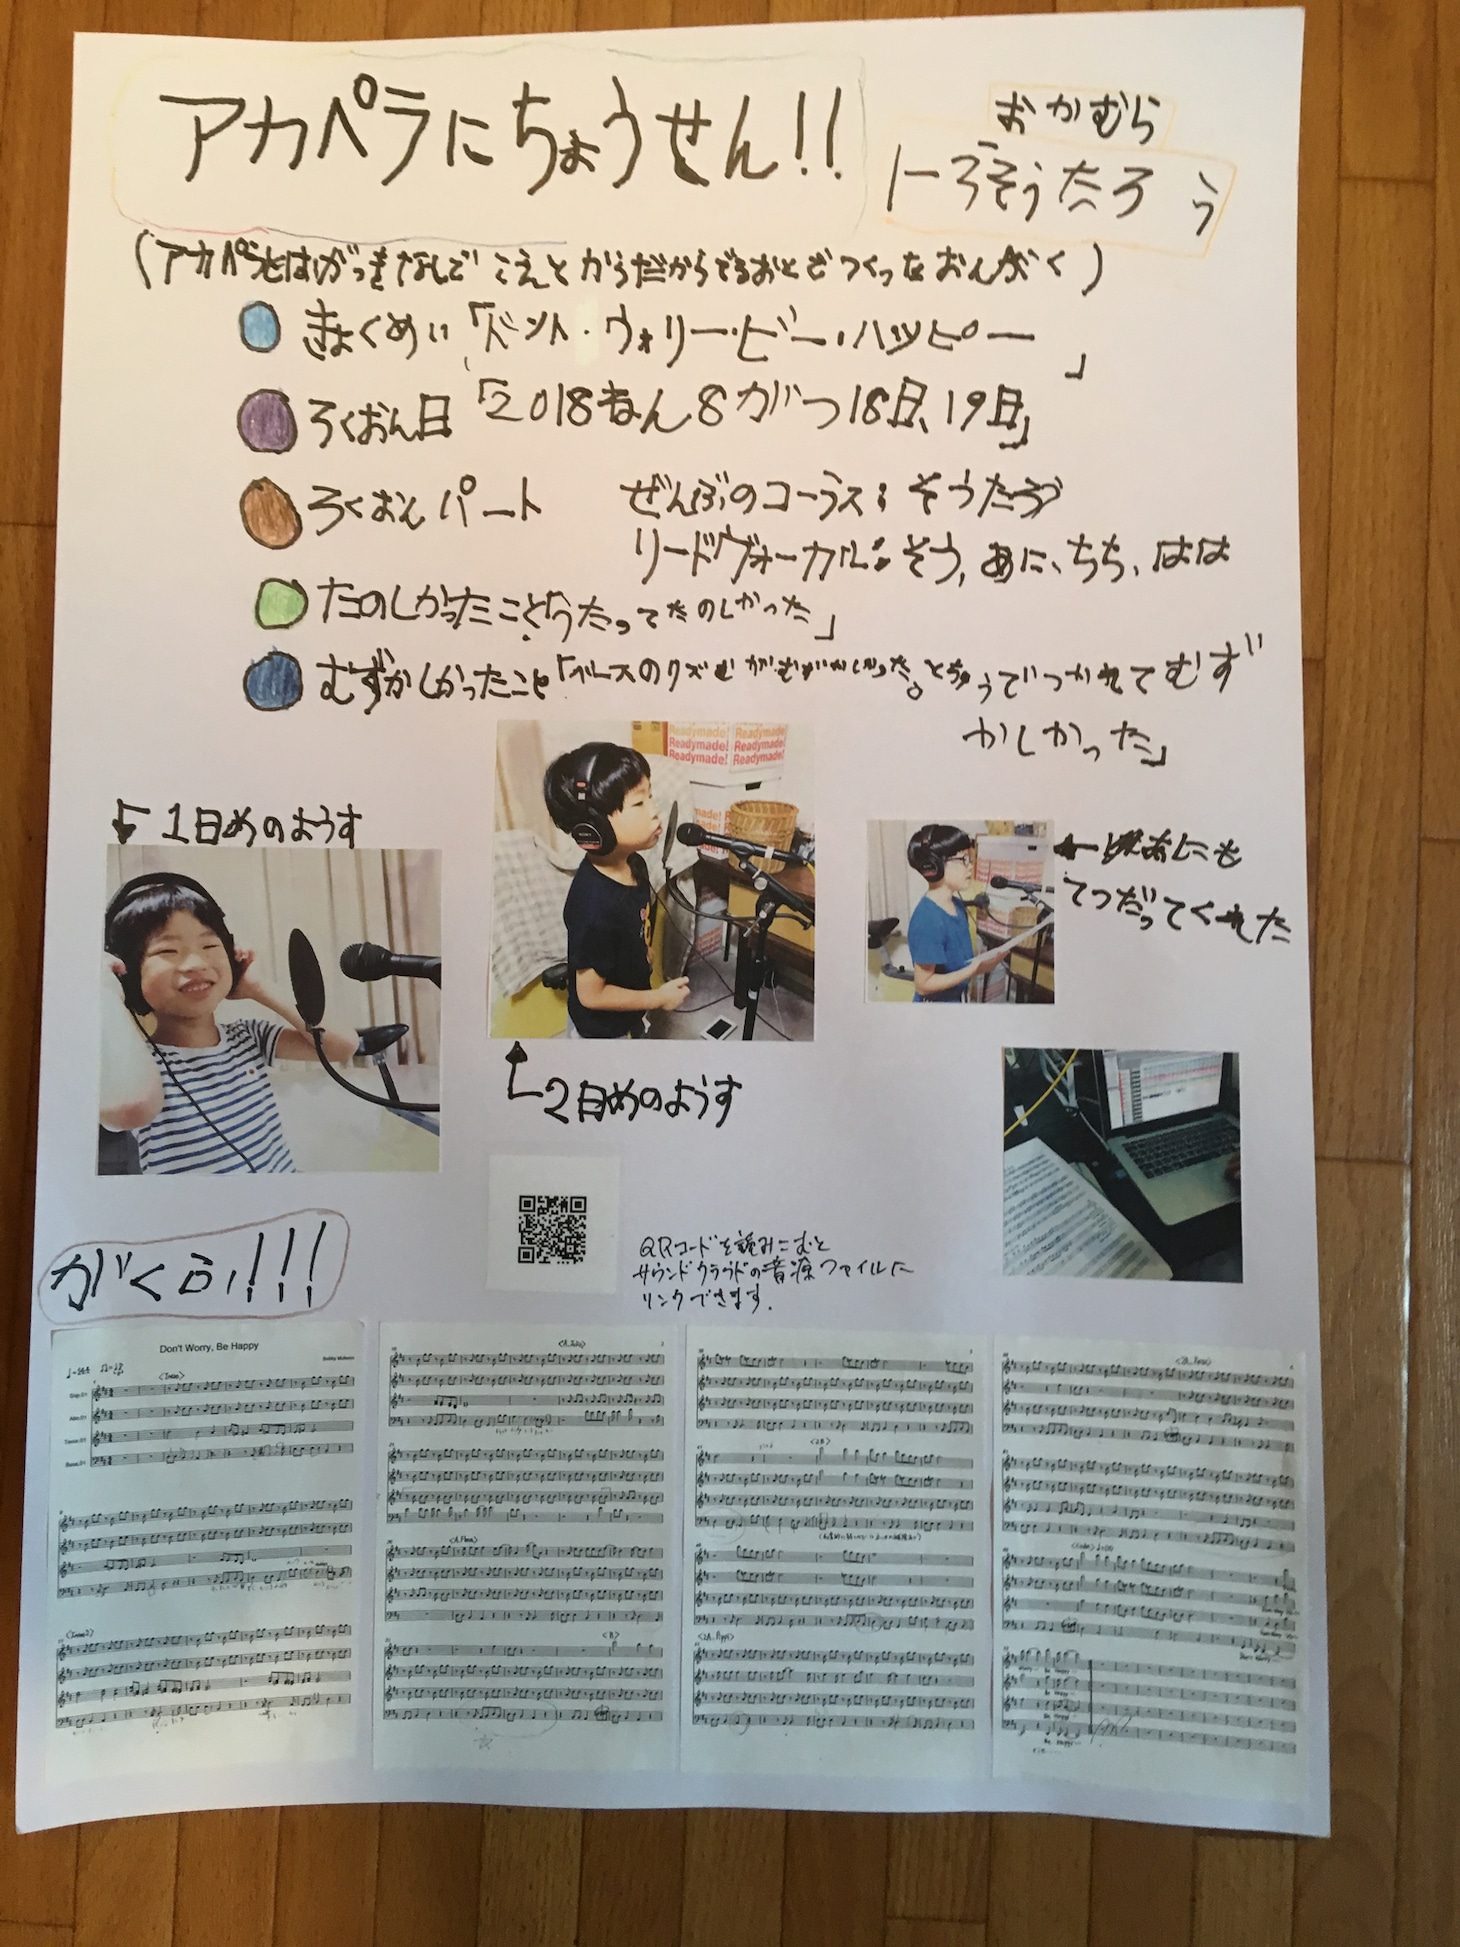 アカペラにちょうせん!!
おかむら
そうたろう
(アカペラとはがっきなしでこえとからだからでるおとでつくったおんがく)
きょくめい「ドント・ウォリー・ビー・ハッピー」
ろくおん日「2018ねん8がつ18日、19日」
ろくおんパート ぜんぶのコーラス:そうたろう
リードヴォーカル:そう,あに、ちち、はは
たのしかったこと「うたってたのしかった」
むずかしかったこと「ベースのリズムがむずかしかった。とちゅうでつかれてむず
かしかった」
1日めのようす
Readymade! Readymade!
Readymade! Readymade!
Readymade! Readymade!
あにも
てつだってくれた
2日めのようす
QRコードを読みこむと
サウンドクラウドの音源ファイルに
リンクできます.
がくふ!!!
Don't Worry, Be Happy
<Intro>
<Intro2>
<B>
<2B>